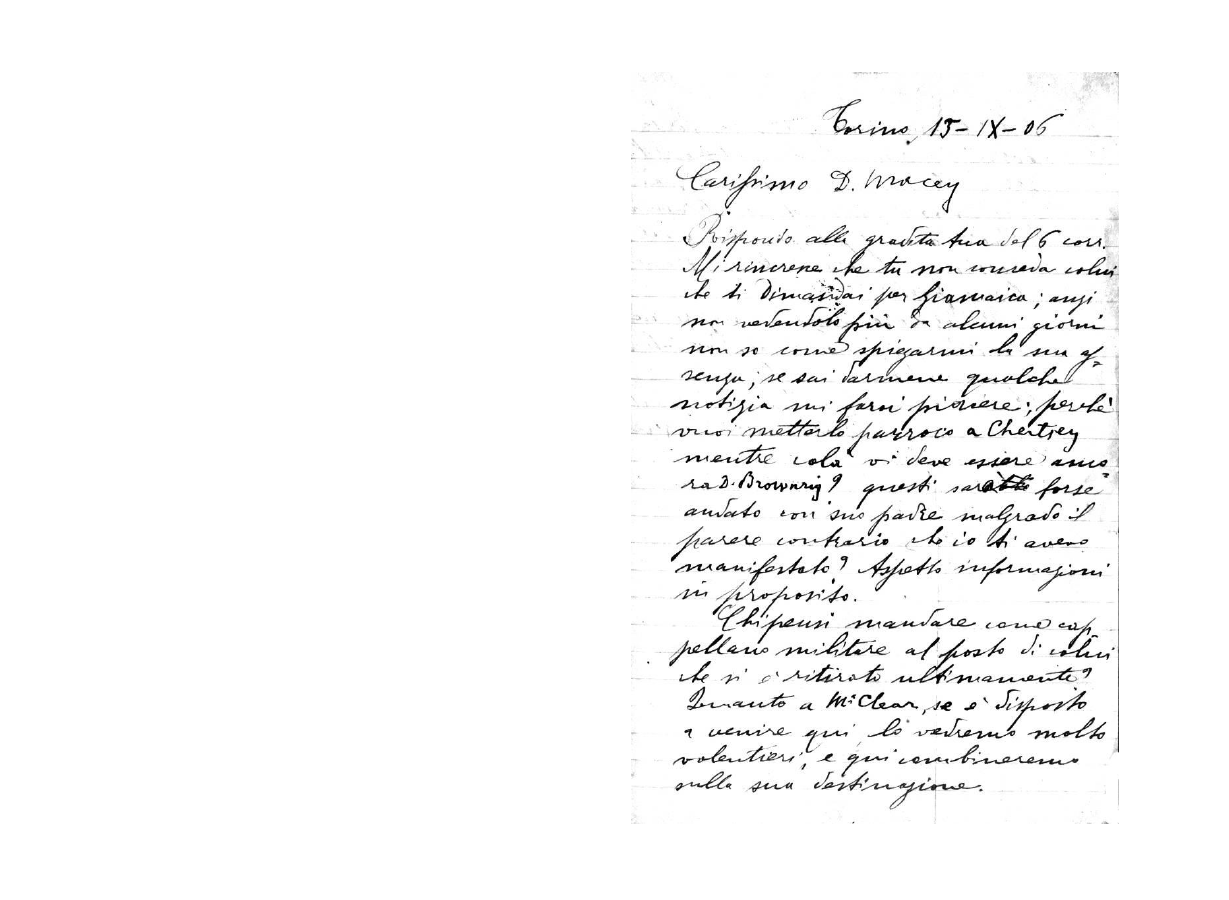 Torino, 15-IX-06
Carissimo D. Macey
Rispondo alla gradita tua del 6 corr.
Mi rincresce che tu non conceda colui
che ti dimandai per Giamaica; anzi
non vedendolo più da alcuni giorni
non so come spiegarmi la sua as=
senza; se sai darmene qualche
notizia mi farai piacere; perchè
vuoi metterlo parroco a Chertsey
mentre colà vi deve essere anco=
ra D. Browning? questi sarebbe forse
andato con suo padre malgrado il
parere contrario che io ti avevo
manifestato? Aspetto informazioni
in proposito.
Chi pensi mandare come cap
pellano militare al posto di colui
che si è ritirato ultimamente?
Quanto a Mc Clear, se è disposto
a venire qui lo vedremo molto
volentieri, e qui combineremo
sulla sua destinazione.